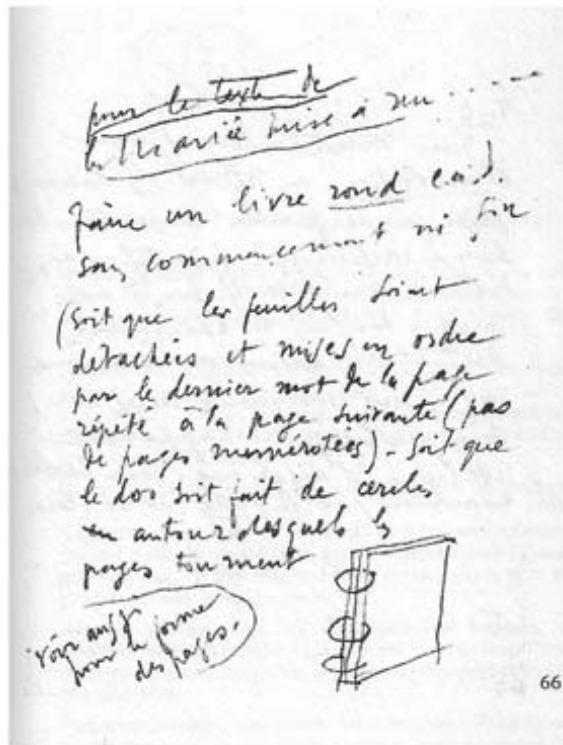 pour le texte de
la Mariée mise à nu .....
Faire un livre rond c.à.d.
sans commencement ni fin
(soit que les feuilles soient
détachées et mises en ordre
par le dernier mot de la page
répété à la page suivante (pas
de pages numérotées) - soit que
le dos soit fait de cercles
autour desquels les
pages tournent
voir aussi
pour la forme
des pages.
66